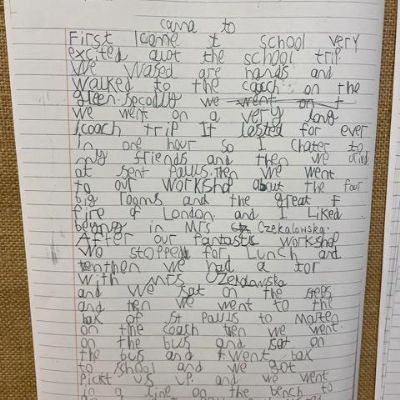 came to
First I come t school very
excited auot the school trip
We Wased are hands and
walked to the coach on the
we went on t
we went on a very long
coach trip It lasted for ever
in are hour so I chater to
my friends and then we
at sent pauls. then we went
to our workshop about the four
big rooms and the great F
fire of London and I Liked
being in Mrs Cz Czekalowska.
After our fantastic workshop
We stopped for Lunch and
tenthen we had a tor
with mrs
and We sat on the steps
and ten we went to the
bax of St Pauls to
on the coach ten we went
on the bus and sat on
the bus and t Went bax
to school and we got
Pickt us up. and we went
in a line on the bench to